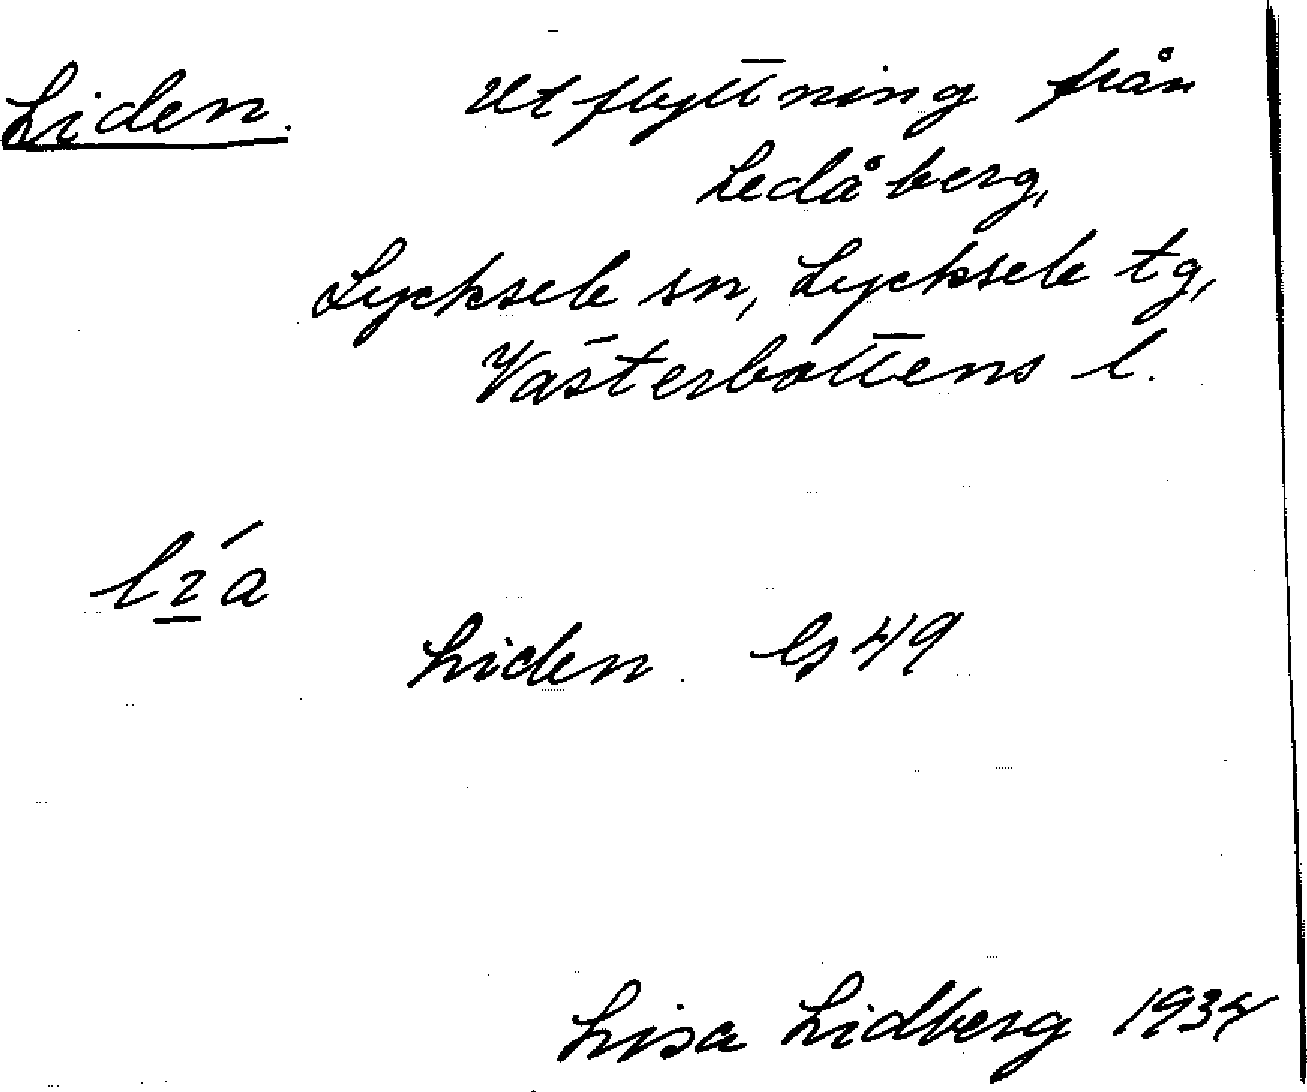 Liden. Utflyttning från
Ledåberg,
Lycksele sn, Lycksele tg,
Västerbottens l.
Liden. Gs 49
Lisa Lidberg 1934